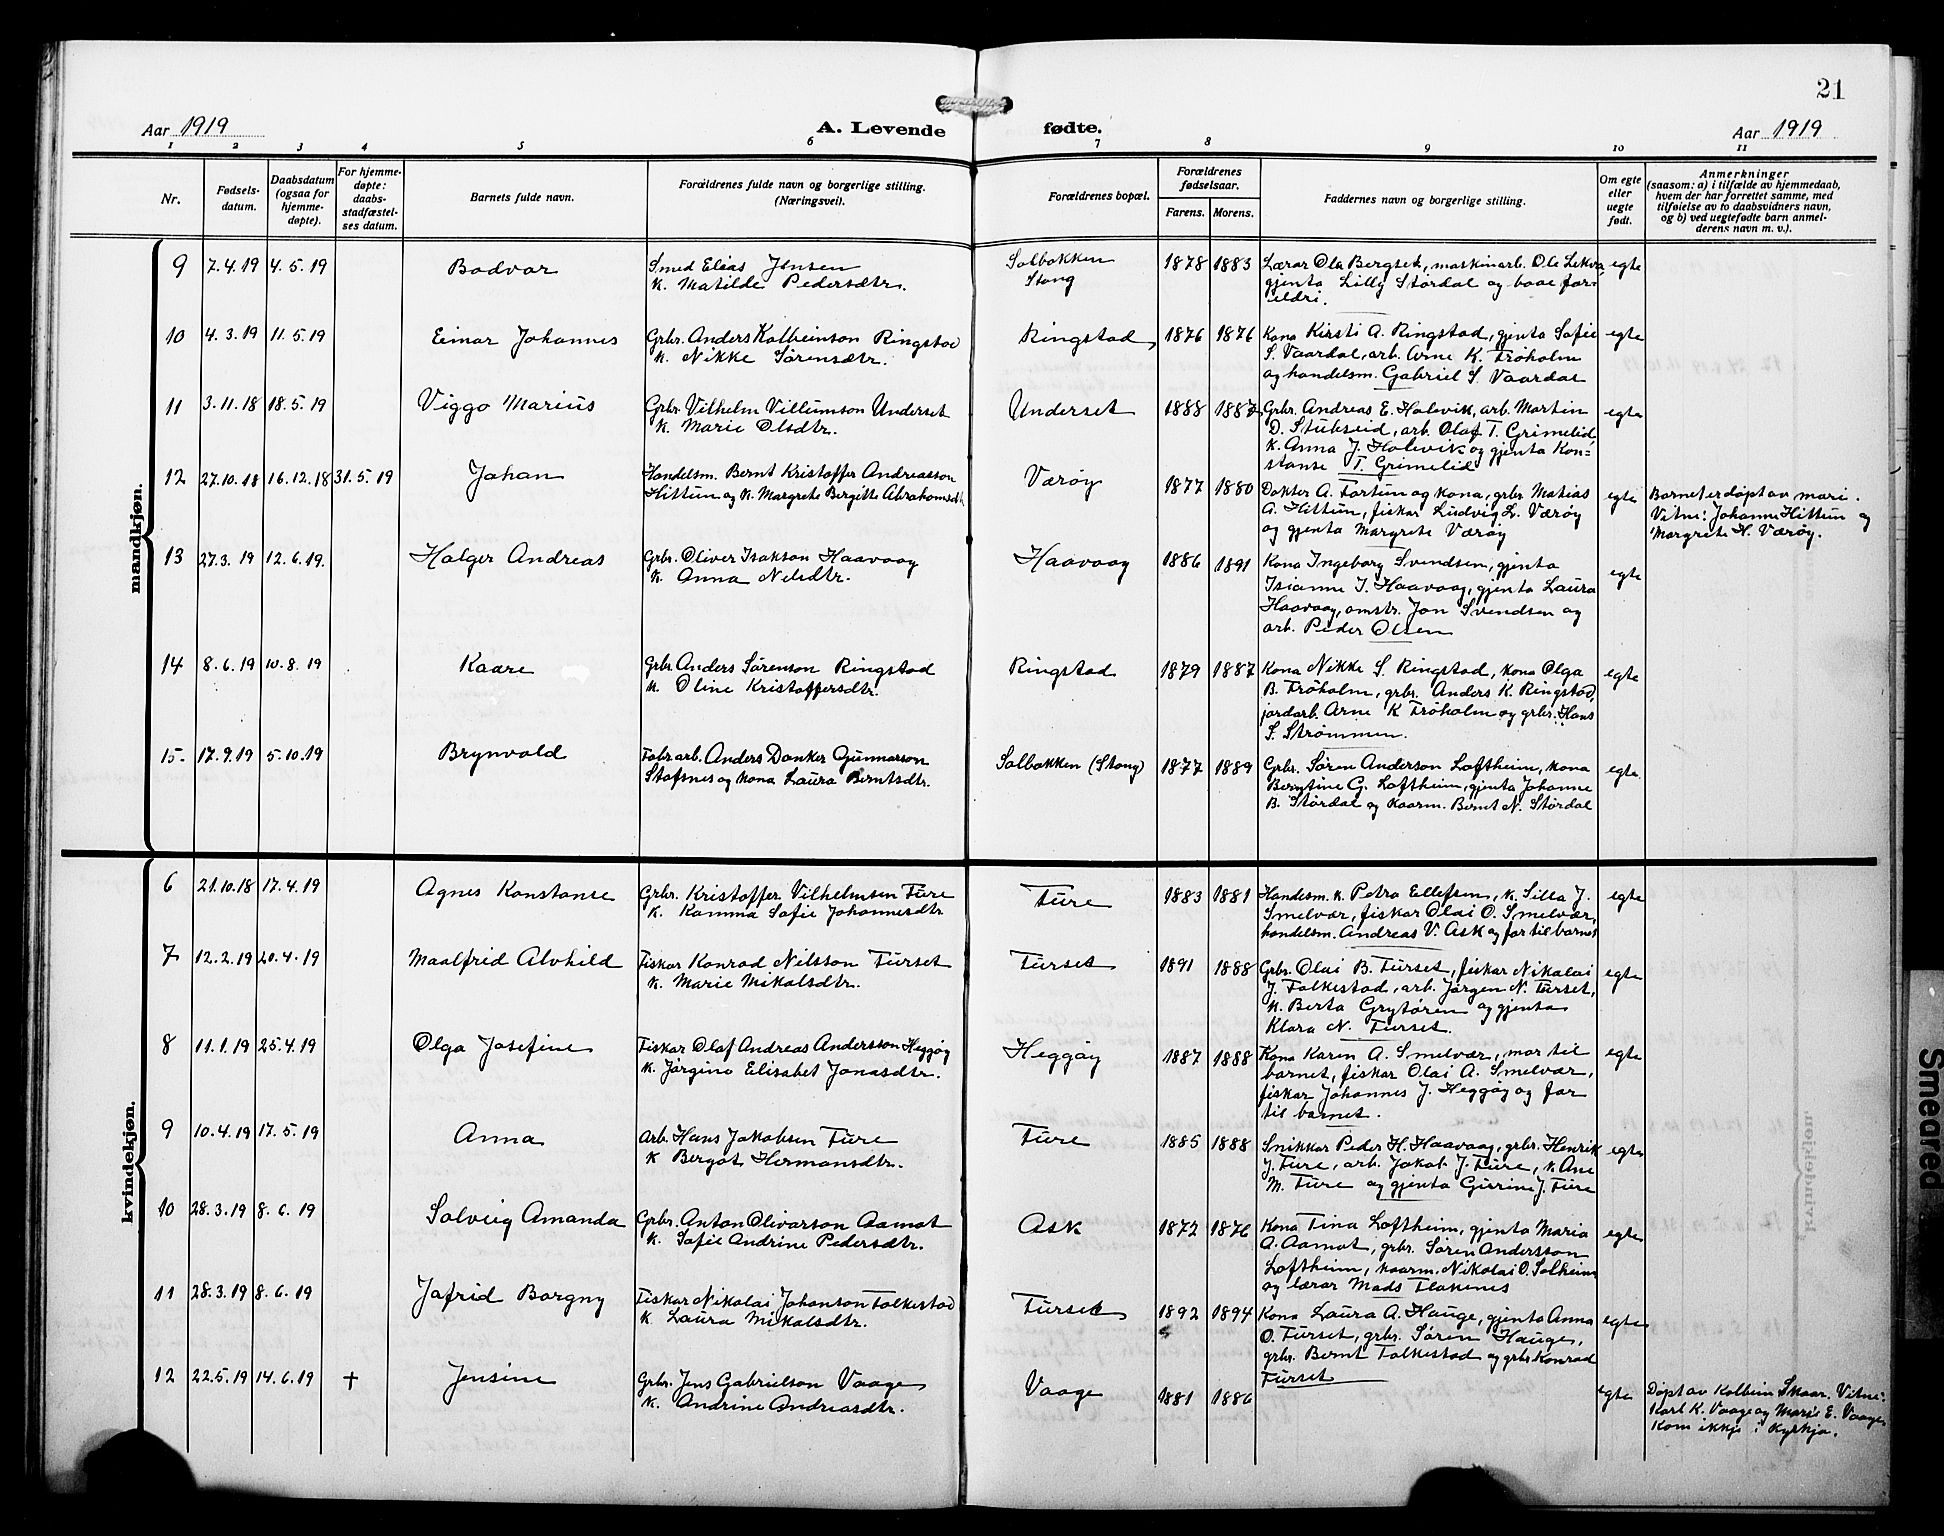 21
Aar 1919
A. Levende fødte.
Aar 1919
1 2 3 4 5 6 7 8 9 10 11
Nr.
Fødsels-
datum.
Daabsdatum
(ogsaa for
hjemme-
døpte).
For hjemme-
døpte:
daabs-
stadfæstel-
ses datum.
Barnets fulde navn.
Forældrenes fulde navn og borgerlige stilling.
(Næringsvei).
Forældrenes bopæl.
Forældrenes
fødselsaar.
Farens. Morens.
Faddernes navn og borgerlige stilling.
Om egte
eller
uegte
født.
Anmerkninger
(saasom: a) i tilfælde av hjemmedaab,
hvem der har forrettet samme, med
tilføielse av to daabsvidners navn,
og b) ved uegtefødte barn anmel-
derens navn m. v.).
mandkjøn.
9 7.4.19 4.5.19 Bodvar
Smed Elias Jensen
k. Matilde Pedersdtr.
Solbakken
Stong
1878 1883
Lærar Ola Bergset, maskinarb. Ole Lekva
gjenta Lilly Størdal og baae for-
eldri.
egte
10 4.3.19 11.5.19 Einar Johannes
Grbr. Anders Kolbeinson Ringstad
k. Nikke Sørensdtr.
Ringstad
1876 1876
Kona Kirsti A. Ringstad, gjenta Sofie
S. Vaardal, arb. Arne K. Frøholm
og handelsm. Gabriel S. Vaardal
egte
11 3.11.18 18.5.19 Viggo Marius
Grbr. Vilhelm Villumson Underset
k. Marie Olsdtr.
Underset
1888 1887
Grbr. Andreas E. Holevik, arb. Martin
D. Stubseid, arb. Olaf T. Grimelid,
k. Anna J. Holevik og gjenta Kon-
stanse T. Grimelid
egte
12 27.10.18 16.12.18 31.5.19 Johan
Handelsm. Bernt Kristoffer Andreasson
Hittun og k. Margrete Bergitte Abrahamsdtr
Værøy
1877 1880
Dokter A. Fortun og kona, grbr Matias
A. Hittun, fiskar Ludvig L. Værøy
og gjenta Margrete Værøy
egte
Barnet er døpt av mari.
Vitne: Johanne Hittun og
Margrete H. Værøy.
13 27.3.19 12.6.19. Holger Andreas
Grbr. Oliver Isakson Haavaag
k. Anna Nilsdtr.
Haavaag
1886 1891
Kona Ingeborg Svendsen, gjenta
Isianne I. Haavaag, gjenta Laura
Haavaag, omstr. Jon Svendsen og
arb. Peder Olsen
egte
14 8.6.19 10.8.19 Kaare
Grbr Anders Sørenson Ringstad
k. Oline Kristoffersdtr.
Ringstad
1879 1887
Kona Nikke S. Ringstad, kona Olga
B. Frøholm, grbr. Anders K. Ringstad,
jordarb. Arne K Frøholm og grbr. Hans
S. Strømmen.
egte
15. 17.9.19 5.10.19 Brynvald
Fabr. arb. Anders Danker Gunnarson
Stafsnes og kona Laura Berntsdtr.
Solbakken (Stong)
1877 1889
Grbr. Søren Anderson Loftheim, kona
Berntine G. Loftheim, gjenta Johanne
B. Størdal og kaarm. Bernt N. Størdal
egte
kvindekjøn.
6 21.10.18 17.4.19 Agnes Konstanse
Grbr. Kristoffer Vilhelmsen Fure
k. Kamma Sofie Johannesdtr
Fure
1883 1881
Handelsm. k. Petra Ellefsen, k. Silla J.
Smelvær, fiskar Olai O. Smelvær,
handelsm. Andreas V. Ask og far til barnet
egte
7 12.2.19 20.4.19 Maalfrid Alvhild
Fiskar Konrad Nilsson Furset
k. Marie Mikalsdtr.
Furset
1891 1888
Grbr. Olai B. Furset, fiskar Nikolai
J. Folkestad, arb. Jørgen N. Furset,
k. Berta Grytøren og gjenta
Klara N. Furset.
egte
8 11.1.19 25.4.19 Olga Josefine
Fiskar Olaf Andreas Andersson Heggøy
k. Jørgine Elisabet Jonasdtr.
Heggøy
1887 1888
Kona Karen A. Smelvær, mor til
barnet, fiskar Olai A. Smelvær,
fiskar Johannes J. Heggøy og far
til barnet.
egte
9 10.4.19 17.5.19 Anna
Arb. Hans Jakobsen Fure
k Bergot Hermansdtr.
Fure
1885 1888
Snikkar Peder H. Haavaag, grbr. Henrik
J. Fure, arb. Jakob J. Fure, k. Ane
M. Fure og gjenta Gurine J. Fure
egte
10 28.3.19 8.6.19 Solveig Amanda
Grbr. Anton Olivarson Aamot
k. Sofie Andrine Pedersdtr.
Ask
1872 1876
Kona Tina Loftheim, gjenta Maria
A. Aamot, grbr. Søren Andersson
Loftheim, kaarm. Nikolai O. Solheim
og lærar Mads Flokenes
egte
11 28.3.19 8.6.19 Jofrid Borgny
Fiskar Nikolai Johanson Folkestad
k. Laura Mikalsdtr.
Furset
1892 1894
Kona Laura A. Hauge, gjenta Anna
O. Furset, grbr. Søren Hauge,
grbr. Bernt Folkestad og grbr Konrad
Furset
egte
12 22.5.19 14.6.19 + Jensine
Grbr. Jens Gabrielson Vaage
k. Andrine Andreasdtr.
Vaage
1881 1886
egte
Døpt av Kolbein Skaar. Vitne:
Karl K. Vaage og Marie E. Vaage.
Kom ikkje i kyrkja.
Smeared